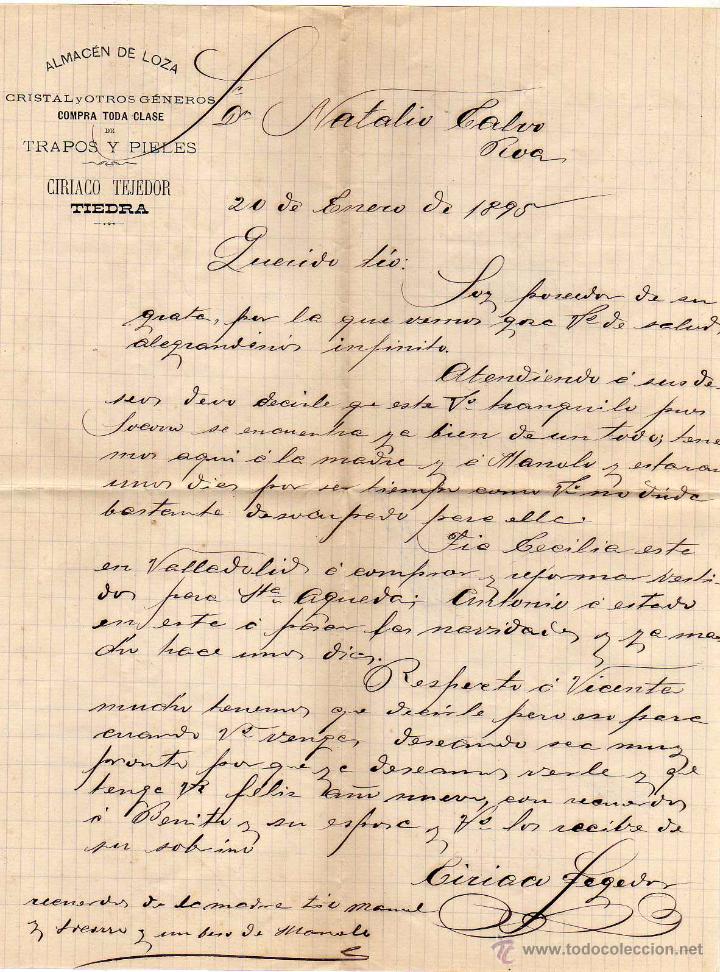 ALMACÉN DE LOZA
CRISTAL y OTROS GÉNEROS
COMPRA TODA CLASE
DE
TRAPOS Y PIELES
CIRIACO TEJEDOR
TIEDRA
Sr Dn Natalio Calvo
Roa
20 de Enero de 1895
Querido tio:
Soy poseedor de su
grata, por la que vemos goza Vd de salud,
alegrandonos infinito.
Atendiendo á sus de-
seos devo decirle que este Vd tranquilo pues
Socorro se encuentra ya bien de un todo; tene
mos aqui á la madre y á Manolo y estaran
unos dias por ser tiempo como Vd no duda
bastante desocupado para ella.
Tia Cecilia este
en Valladolid á comprar y reformar vesti
dos para Sta Agueda; Antonio á estado
en este á pasar las navidades y ya mar
chó hace unos dias.
Respecto á Vicenta
mucho tenemos que decirle pero eso para
cuando Vd venga, deseando sea muy
pronto por que ya deseamos verle y que
tenga Vd feliz año nuevo, con recuerdos
á Benita y su esposo y Vd los recibe de
su sobrino
Ciriaco Tegedor
recuerdos de la madre tio Manuel
y Socorro y un beso de Manolo
© www.todocoleccion.net